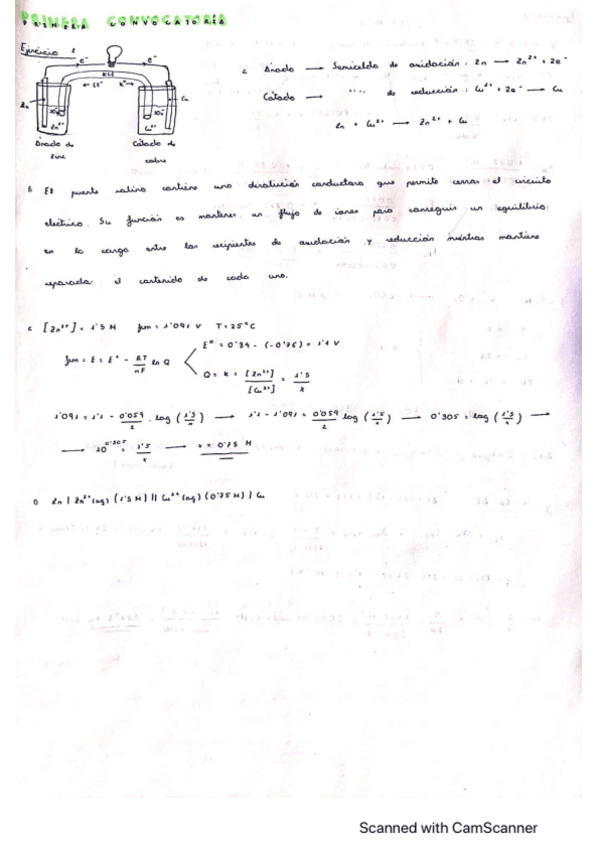 PRIMERA CONVOCATORIA
Ejercicio 1
e⁻ e⁻
KCl
← Cl⁻ K⁺ →
Zn Cu
Zn²⁺ Cu²⁺
Ánodo de zinc
Cátodo de cobre
Ánodo → Semicelda de oxidación : Zn → Zn²⁺ + 2e⁻
Cátodo → " " de reducción : Cu²⁺ + 2e⁻ → Cu
Zn + Cu²⁺ → Zn²⁺ + Cu
B El puente salino contiene una disolución conductora que permite cerrar el circuito
eléctrico. Su función es mantener un flujo de iones para conseguir un equilibrio
en la carga entre los recipientes de oxidación y reducción mientras mantiene
separado el contenido de cada uno.
C [Zn²⁺] = 1'5 M fem = 1'091 V T = 25°C
fem = E = E° - RT/nF ln Q
E° = 0'34 - (-0'76) = 1'1 V
Q = K = [Zn²⁺]/[Cu²⁺] = 1'5/x
1'091 = 1'1 - 0'059/2 · log (1'5/x) → 1'1 - 1'091 = 0'059/2 log (1'5/x) → 0'305 = log (1'5/x) →
→ 10^0'305 = 1'5/x → x = 0'75 M
D Zn | Zn²⁺ (aq) (1'5 M) || Cu²⁺ (aq) (0'75 M) | Cu
Scanned with CamScanner